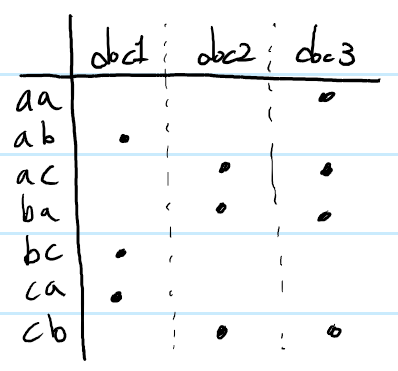 doc1 doc2 doc3
aa
ab
ac
ba
bc
ca
cb